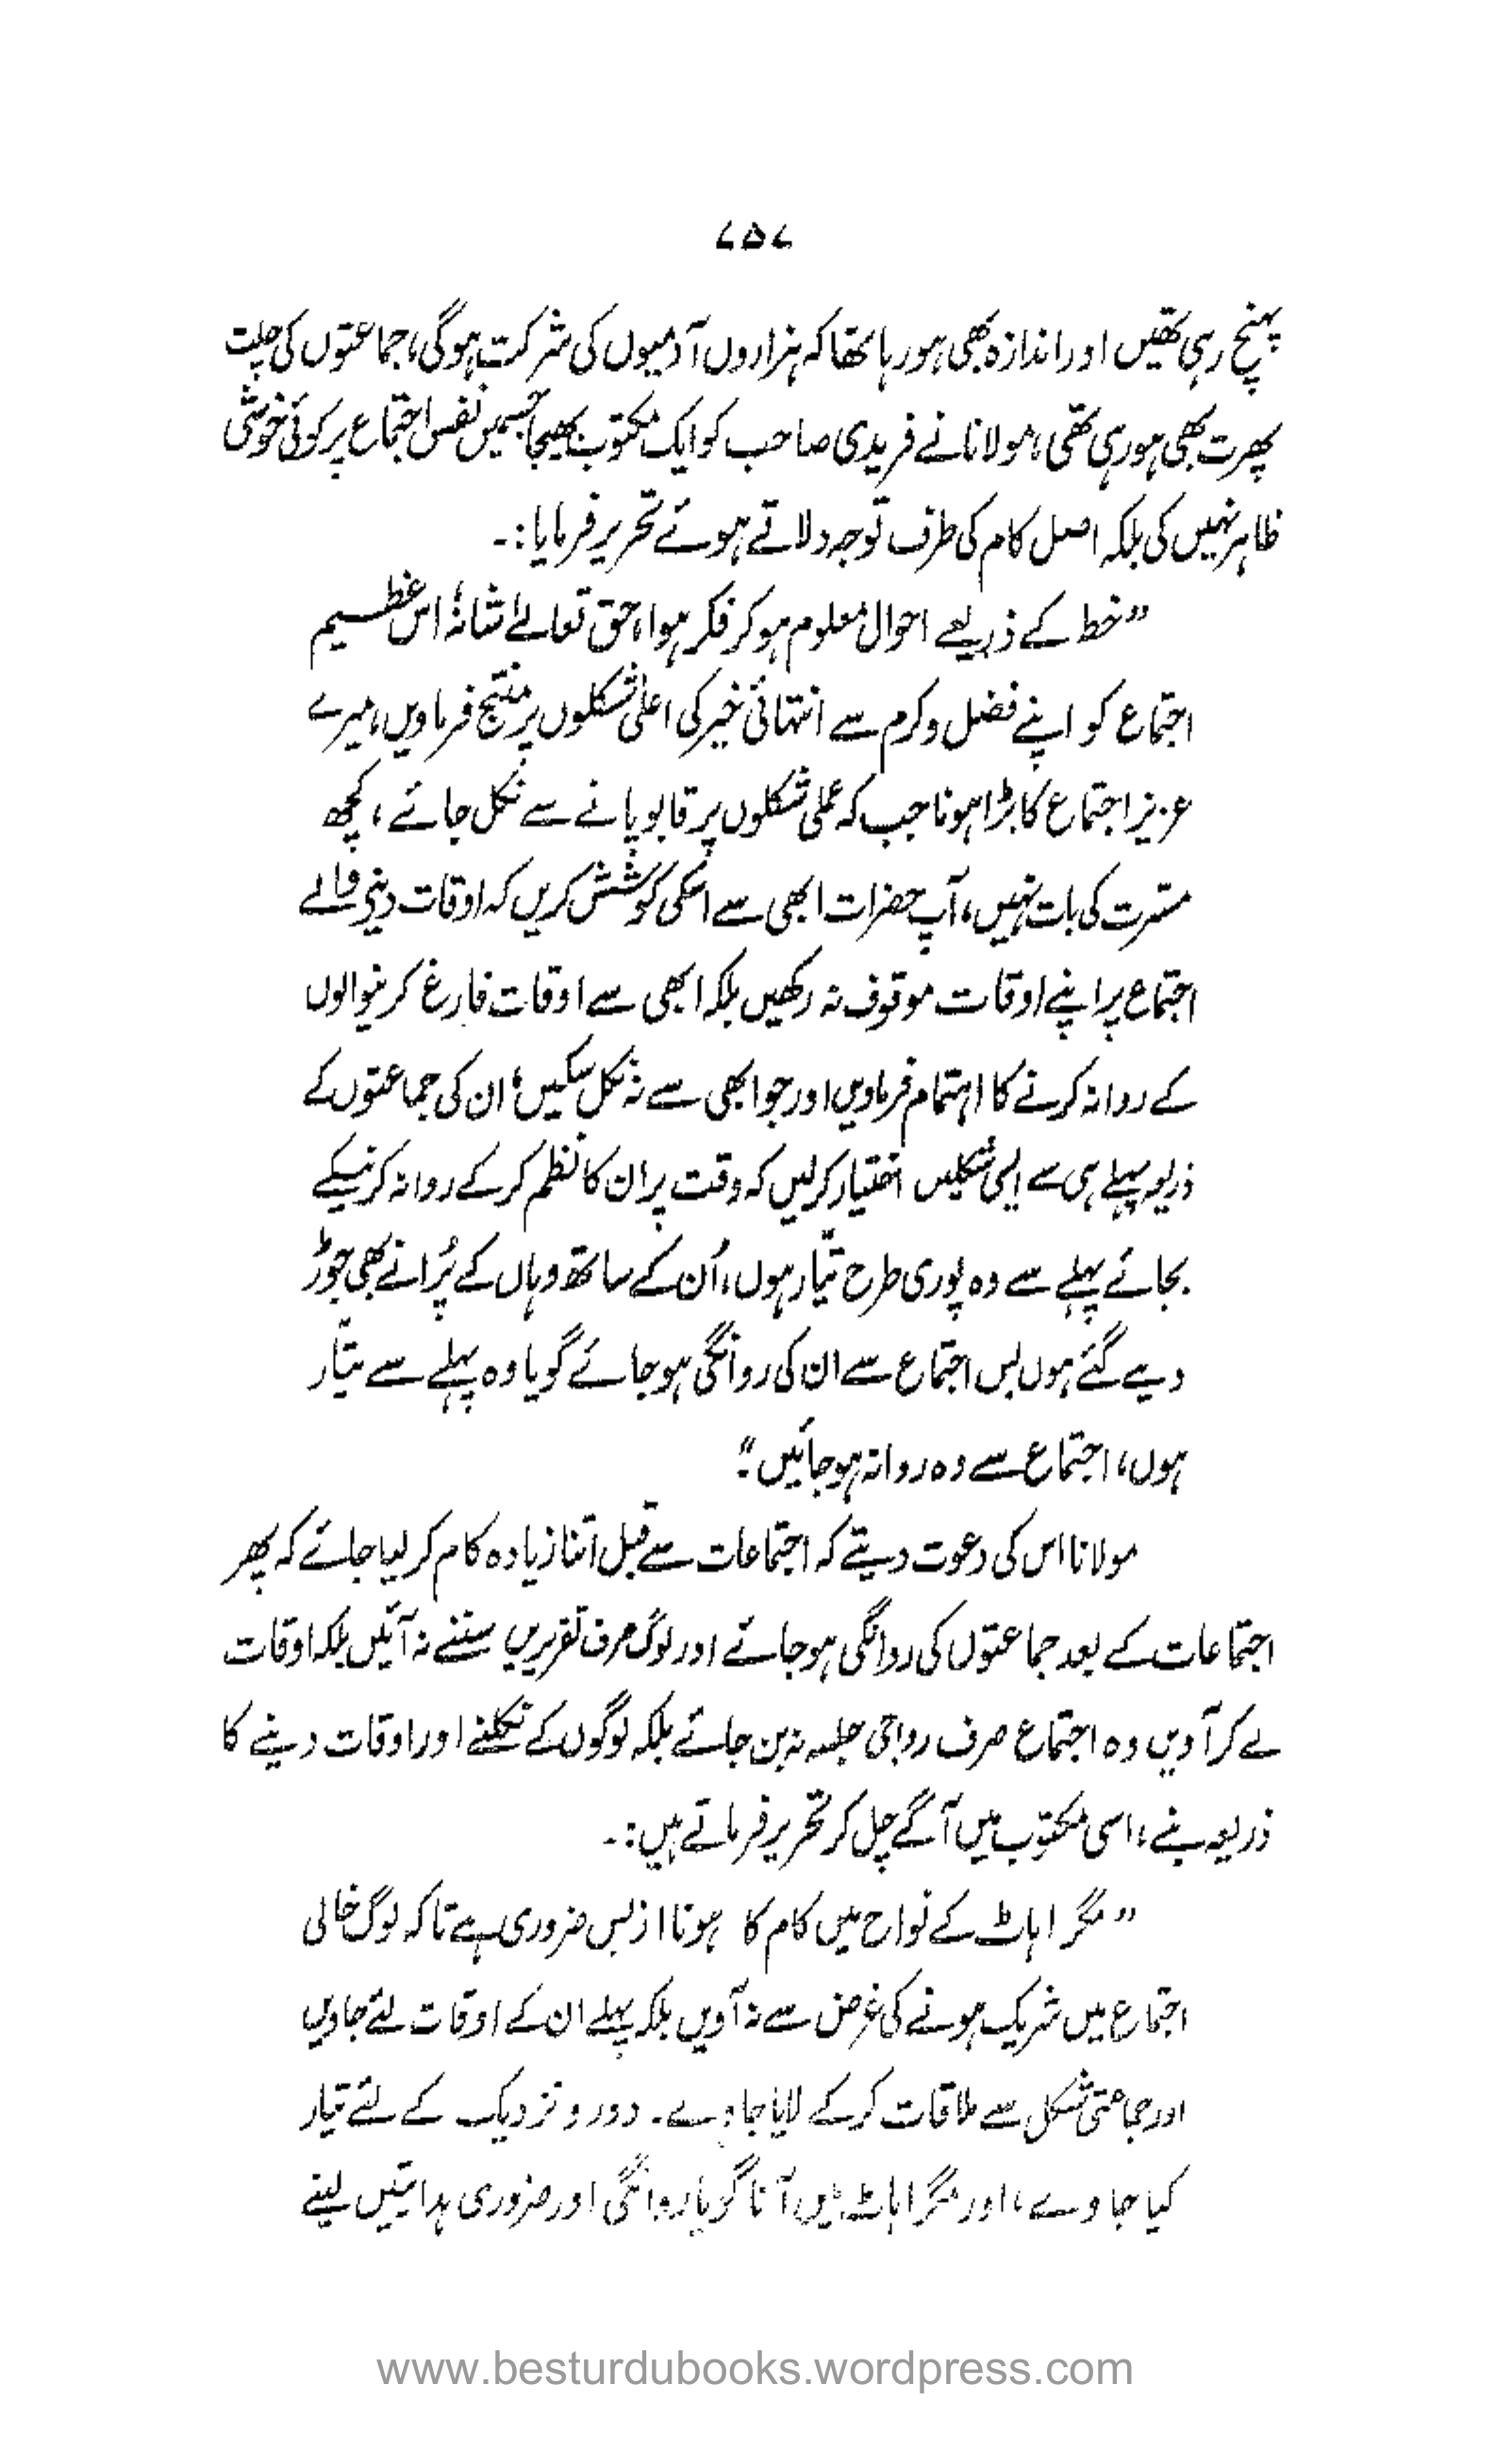 ۷۵۷
پہنچ رہی تھیں اور اندازہ بھی ہو رہا تھا کہ ہزاروں آدمیوں کی شرکت ہوگی، جماعتوں کی چلت
پھرت بھی ہو رہی تھی، مولانا نے فریدی صاحب کو ایک مکتوب بھیجا جسمیں نفس اجتماع پر کوئی خوشی
ظاہر نہیں کی بلکہ اصل کام کی طرف توجہ دلاتے ہوئے تحریر فرمایا:۔
”خط کے ذریعے احوال معلوم ہو کر فکر ہوا، حق تعالےٰ شانہٗ اس عظیم
اجتماع کو اپنے فضل وکرم سے انتہائی خیر کی اعلیٰ شکلوں پر منتج فرماویں، میرے
عزیز اجتماع کا بڑا ہونا جب کہ عملی شکلوں پر قابو پانے سے نکل جائے، کچھ
مسرّت کی بات نہیں، آپ حضرات ابھی سے اسکی کوشش کریں کہ اوقات دینے والے
اجتماع پر اپنے اوقات موقوف نہ رکھیں بلکہ ابھی سے اوقات فارغ کرنیوالوں
کے روانہ کرنے کا اہتمام فرماویں اور جو ابھی سے نہ نکل سکیں، ان کی جماعتوں کے
ذریعہ پہلے ہی سے ایسی شکلیں اختیار کرلیں کہ وقت پر ان کا نظم کر کے روانہ کرنیکے
بجائے پہلے سے وہ پوری طرح تیّار ہوں، اُن کے ساتھ وہاں کے پُرانے بھی جوڑ
دیے گئے ہوں بس اجتماع سے ان کی روانگی ہو جائے گویا وہ پہلے سے تیّار
ہوں، اجتماع سے وہ روانہ ہو جائیں۔“
مولانا اس کی دعوت دیتے کہ اجتماعات سے قبل اتنا زیادہ کام کر لیا جائے کہ پھر
اجتماعات کے بعد جماعتوں کی روانگی ہو جائے اور لوگ صرف تقریریں سننے نہ آئیں بلکہ اوقات
لے کر آویں وہ اجتماع صرف رواجی جلسہ نہ بن جائے بلکہ لوگوں کے نکلنے اور اوقات دینے کا
ذریعہ بنے، اسی مکتوب میں آگے چل کر تحریر فرماتے ہیں:۔
”مگراہاٹ کے نواح میں کام کا ہونا از بس ضروری ہے تاکہ لوگ خالی
اجتماع میں شریک ہونے کی غرض سے نہ آویں بلکہ پہلے ان کے اوقات لئے جاویں
اور جماعتی شکل سے ملاقات کر کے لایا جاوے۔ دور و نزدیک کے لئے تیار
کیا جاوے، اور مگراہاٹ میں آنا گویا روانگی اور ضروری ہدایتیں لینے
www.besturdubooks.wordpress.com